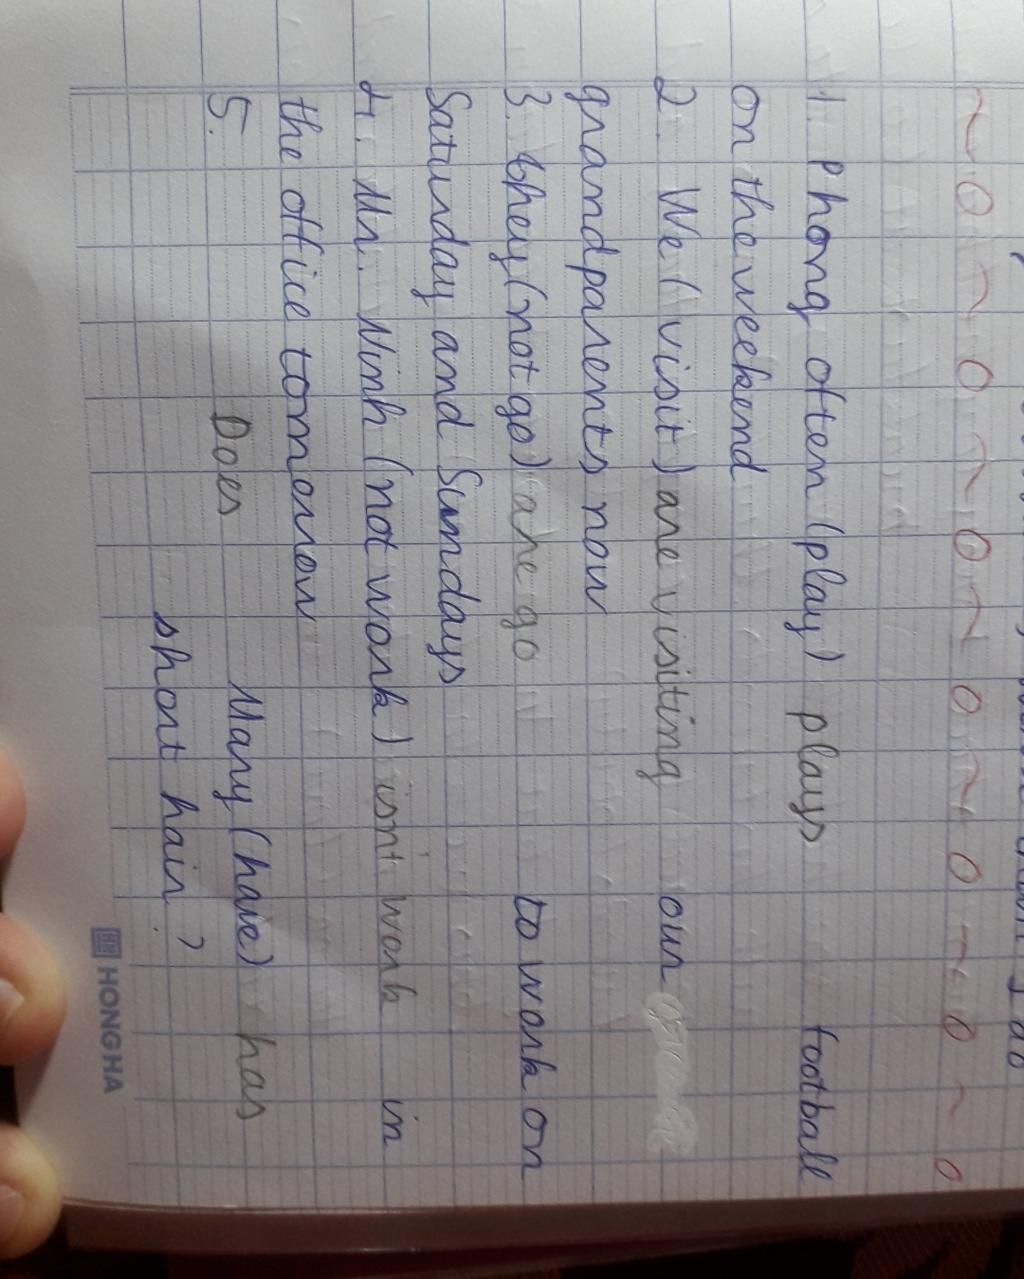 1. Phong often (play) plays football
on the weekend
2. We (visit) are visiting our
grandparents now
3. they (not go) are go to work on
Saturday and Sundays
4. Mr. Minh (not work) isn't work in
the office tomorrow
5. Does Mary (have) has
short hair?
HONG HA